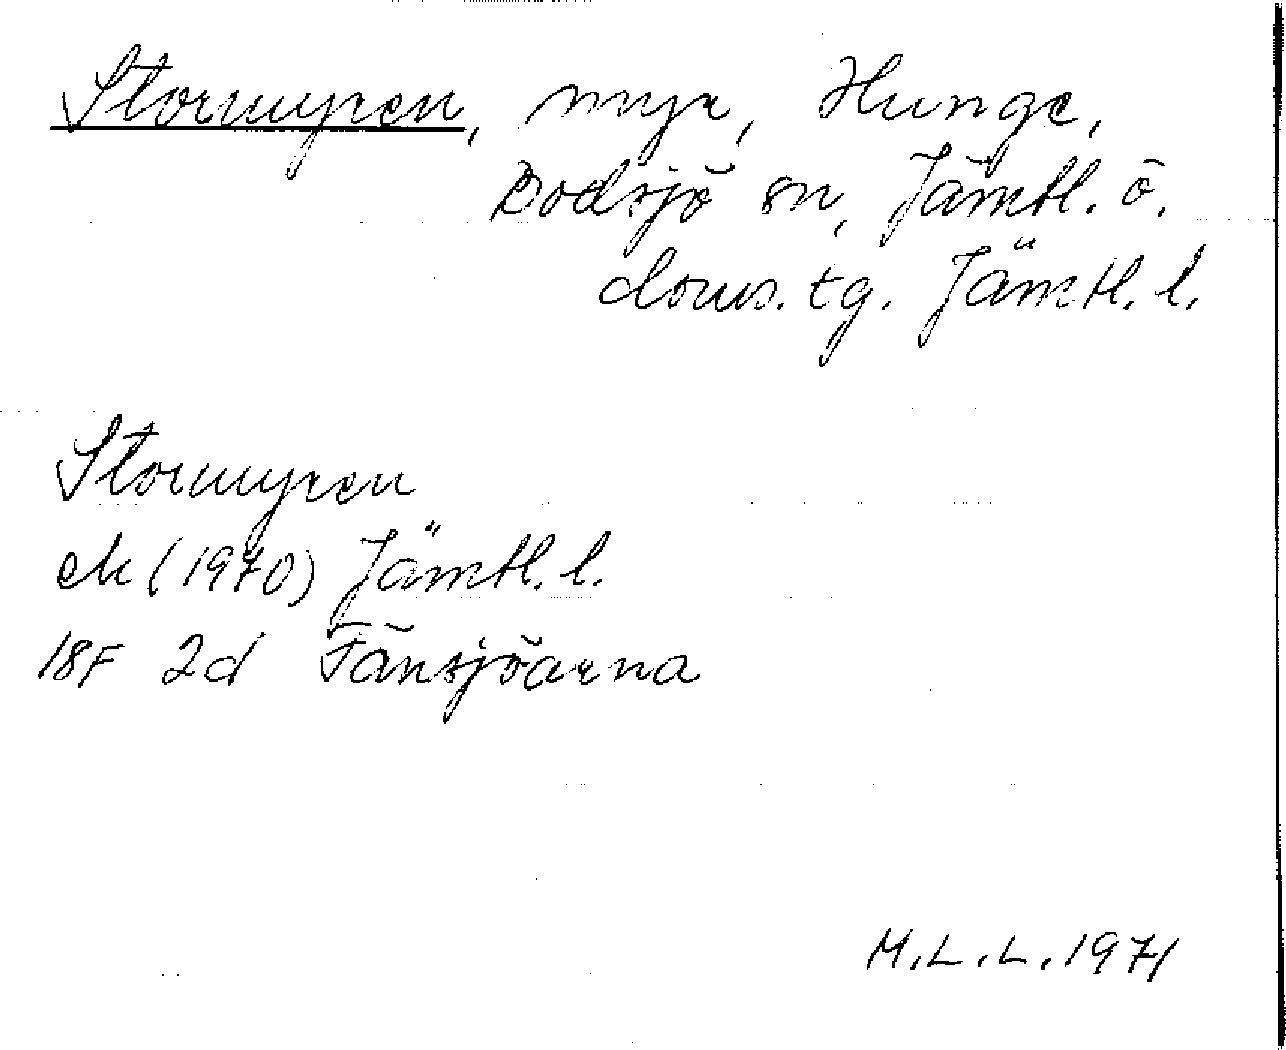 Stormyren, myr, Hunge,
Bodsjö sn, Jämtl. ö.
doms. tg. Jämtl. l.
Stormyren
ek (1970) Jämtl. l.
18F 2d Fänsjöarna
M.L.L. 1971